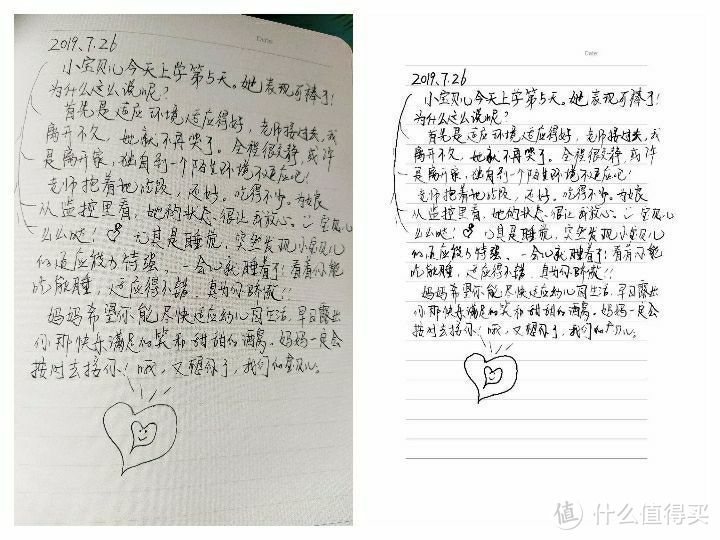 Date:
2019.7.26
小宝贝儿今天上学第5天。她表现可棒了!
为什么这么说呢?
首先是适应环境适应得好,老师接过来,我
离开不久,她就不再哭了。全程很安静,或许
是离开家,独自到一个陌生环境不适应吧!
老师抱着她吃饭,还好。吃得不少。为娘
从监控里看,她的状态很让我放心。宝贝儿
么么哒!尤其是睡觉,突然发现小宝贝儿
的适应能力特强、一会儿就睡着了!看着你能
吃能睡,适应得不错,真为你骄傲!!
妈妈希望你能尽快适应幼儿园生活,早日露出
你那快乐满足的笑和甜甜的酒窝。妈妈一定会
按时去接你!哦,又想你了,我们的宝贝儿。
Date:
2019.7.26
小宝贝儿今天上学第5天。她表现可棒了!
为什么这么说呢?
首先是适应环境适应得好,老师接过来,我
离开不久,她就不再哭了。全程很安静,或许
是离开家,独自到一个陌生环境不适应吧!
老师抱着她吃饭,还好。吃得不少。为娘
从监控里看,她的状态很让我放心。宝贝儿
么么哒!尤其是睡觉,突然发现小宝贝儿
的适应能力特强、一会儿就睡着了!看着你能
吃能睡,适应得不错,真为你骄傲!!
妈妈希望你能尽快适应幼儿园生活,早日露出
你那快乐满足的笑和甜甜的酒窝。妈妈一定会
按时去接你!哦,又想你了,我们的宝贝儿。
值 什么值得买